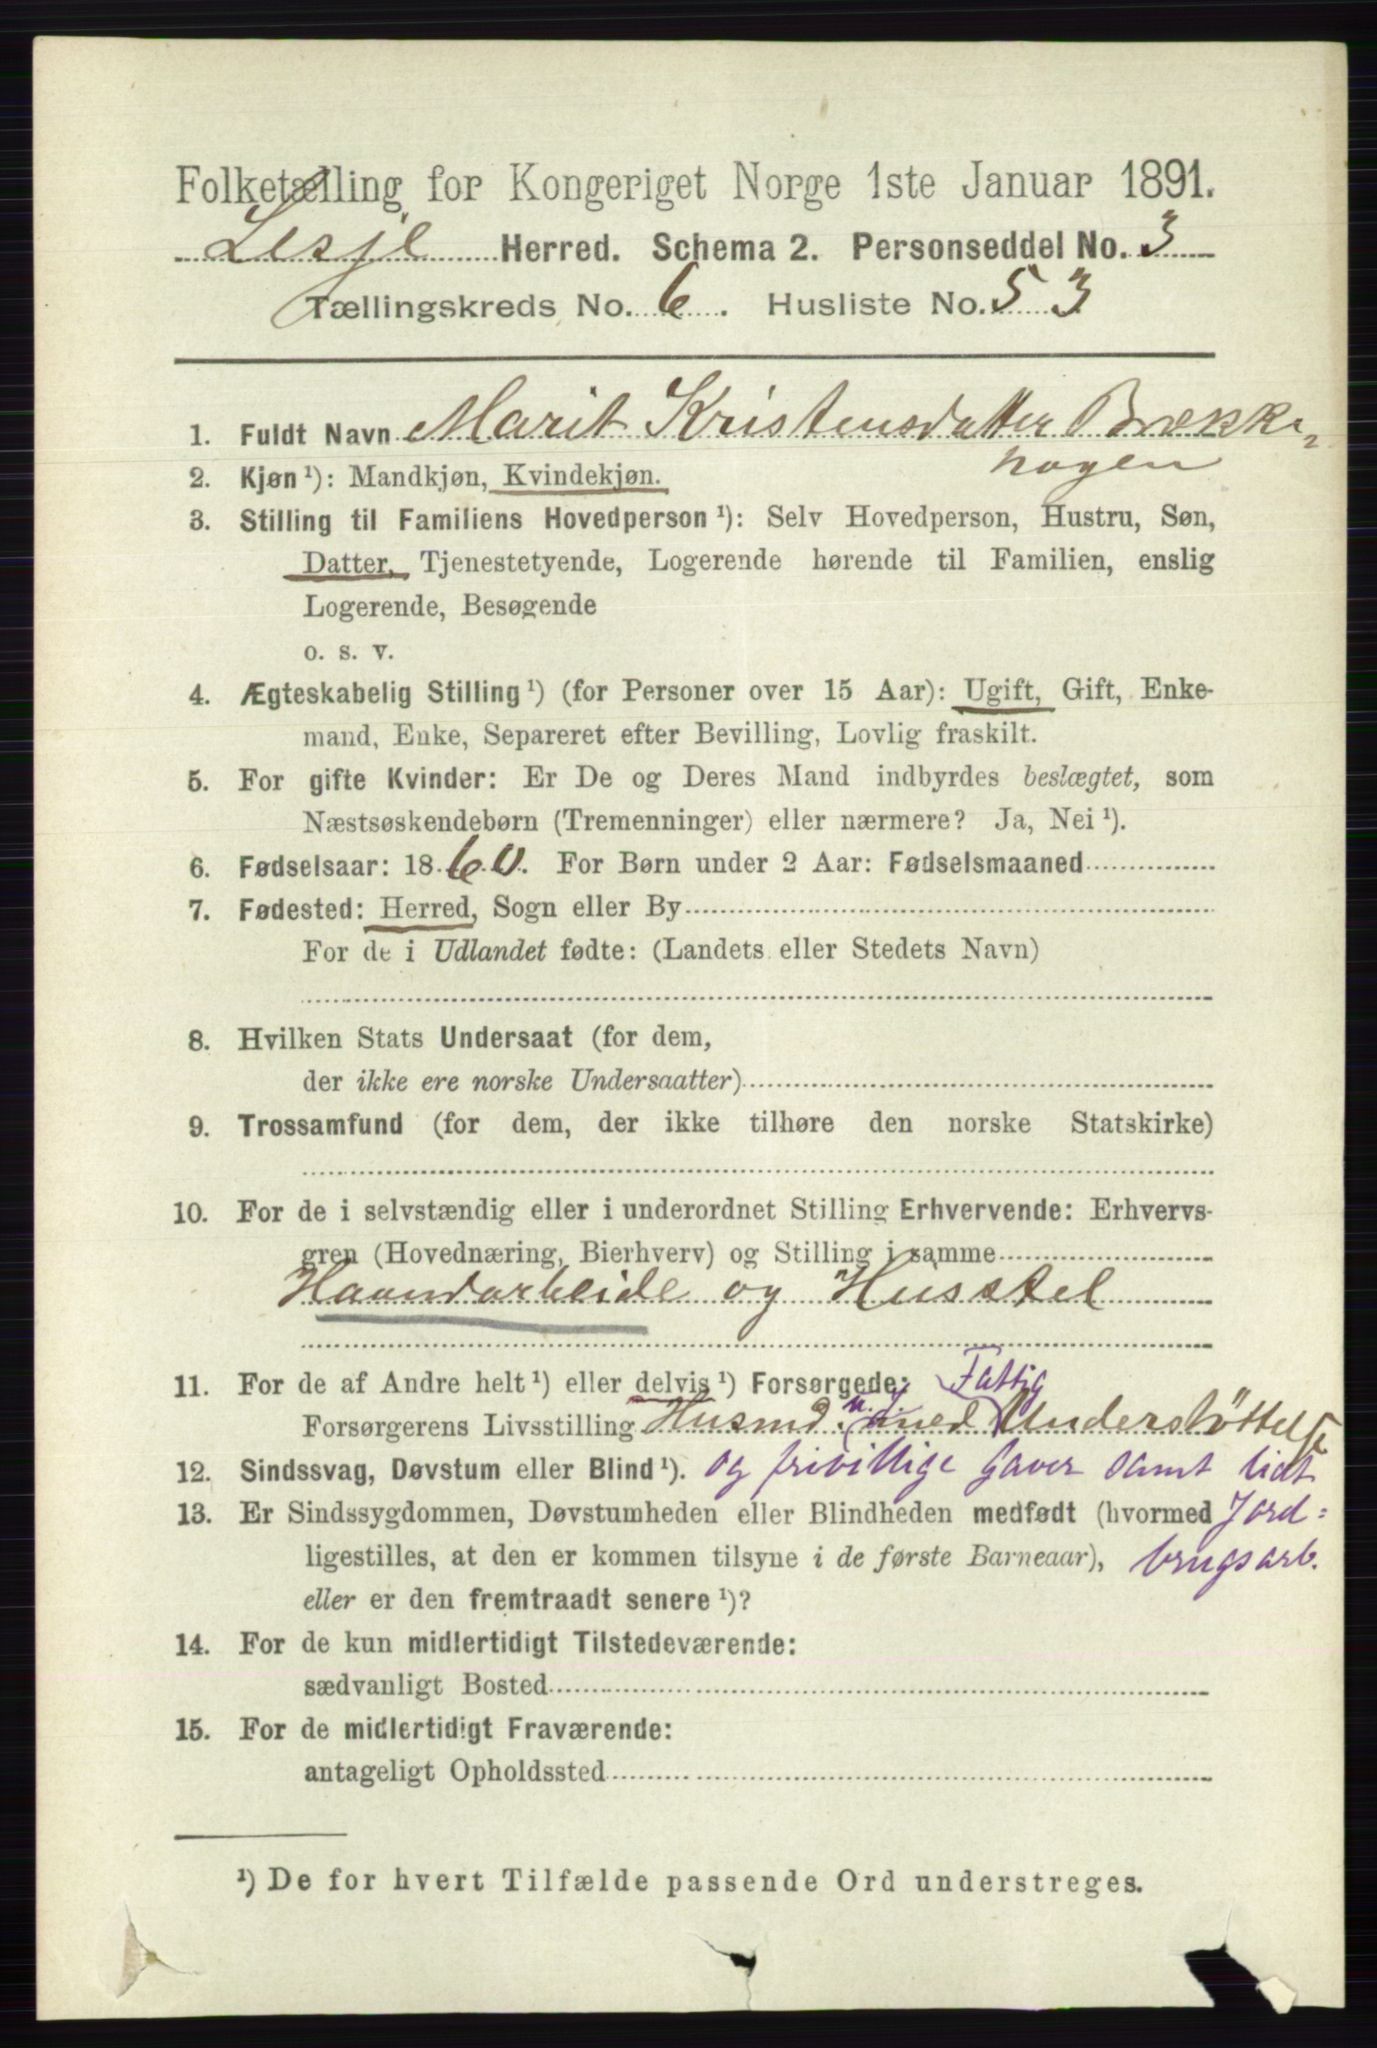 Folketælling for Kongeriget Norge 1ste Januar 1891.
Lesje Herred. Schema 2. Personseddel No. 3
Tællingskreds No. 6. Husliste No. 53
1. Fuldt Navn Marit Kristensdatter Brække-
hagen
2. Kjøn ¹): Mandkjøn, Kvindekjøn.
3. Stilling til Familiens Hovedperson ¹): Selv Hovedperson, Hustru, Søn,
Datter, Tjenestetyende, Logerende hørende til Familien, enslig
Logerende, Besøgende
o. s. v.
4. Ægteskabelig Stilling ¹) (for Personer over 15 Aar): Ugift, Gift, Enke-
mand, Enke, Separeret efter Bevilling, Lovlig fraskilt.
5. For gifte Kvinder: Er De og Deres Mand indbyrdes beslægtet, som
Næstsøskendebørn (Tremenninger) eller nærmere? Ja, Nei ¹).
6. Fødselsaar: 1860. For Børn under 2 Aar: Fødselsmaaned
7. Fødested: Herred, Sogn eller By
For de i Udlandet fødte: (Landets eller Stedets Navn)
8. Hvilken Stats Undersaat (for dem,
der ikke ere norske Undersaatter)
9. Trossamfund (for dem, der ikke tilhøre den norske Statskirke)
10. For de i selvstændig eller i underordnet Stilling Erhvervende: Erhvervs-
gren (Hovednæring, Bierhverv) og Stilling i samme
Haandarbeide og Husstel
11. For de af Andre helt ¹) eller delvis ¹) Forsørgede: Fattig
Forsørgerens Livsstilling Husmd. m. J. (med Understöttelse
12. Sindssvag, Døvstum eller Blind ¹). og frivillige Gaver samt lidt
13. Er Sindssygdommen, Døvstumheden eller Blindheden medfødt (hvormed Jord-
ligestilles, at den er kommen tilsyne i de første Barneaar), brugsarb.
eller er den fremtraadt senere ¹)?
14. For de kun midlertidigt Tilstedeværende:
sædvanligt Bosted
15. For de midlertidigt Fraværende:
antageligt Opholdssted
¹) De for hvert Tilfælde passende Ord understreges.